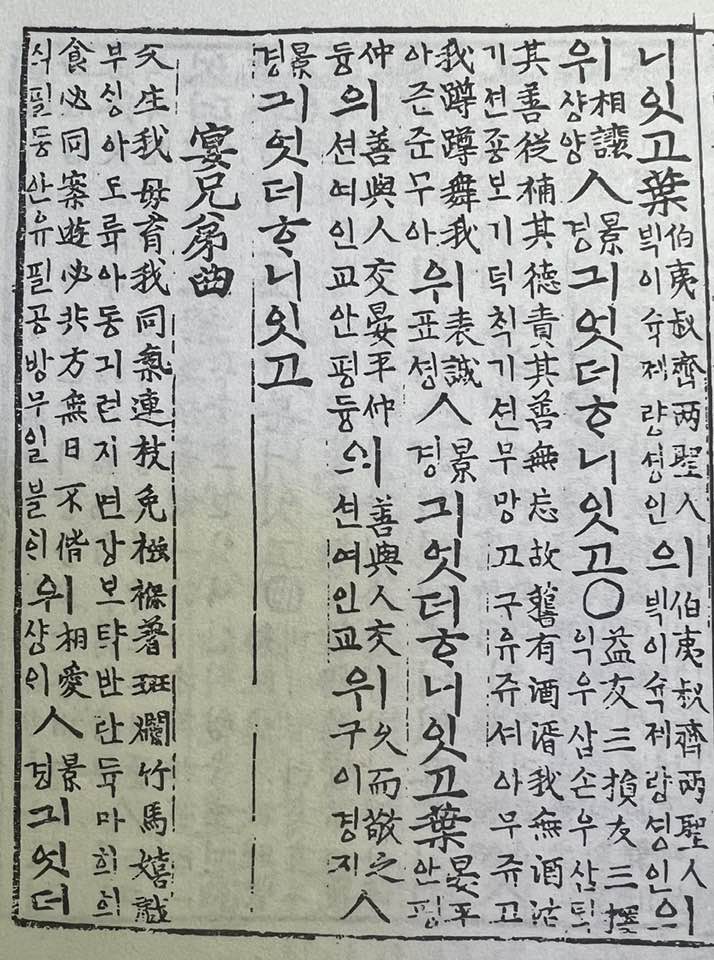 니잇고葉伯夷叔齊兩聖人ᄇᆡᆨ이슉졔량셩인의伯夷叔齊兩聖人ᄇᆡᆨ이슉졔량셩인의
위相讓샹양ㅅ景경긔엇더ᄒᆞ니잇고○益友三損友三擇익우삼손우삼ᄐᆡᆨ
其善從補其德責其善無忘故舊有酒湑我無酒沽기션죵보기덕ᄎᆡᆨ기션무망고구유쥬셔아무쥬고
我蹲蹲舞我아준준무아위表誠표셩ㅅ景경긔엇더ᄒᆞ니잇고葉晏平안평
仲듕의善與人交晏平仲션여인교안평듕의善與人交션여인교위久而敬之구이경지ㅅ
景경긔엇더ᄒᆞ니잇고
宴兄弟曲
父生我母育我同氣連枝免襁褓著斑斕竹馬嬉戱부ᄉᆡᆼ아모륙아동긔련지면강보탹반란듁마희희
食必同案遊必共方無日不偕식필동안유필공방무일블ᄒᆡ위相愛샹ᄋᆡㅅ景경긔엇더